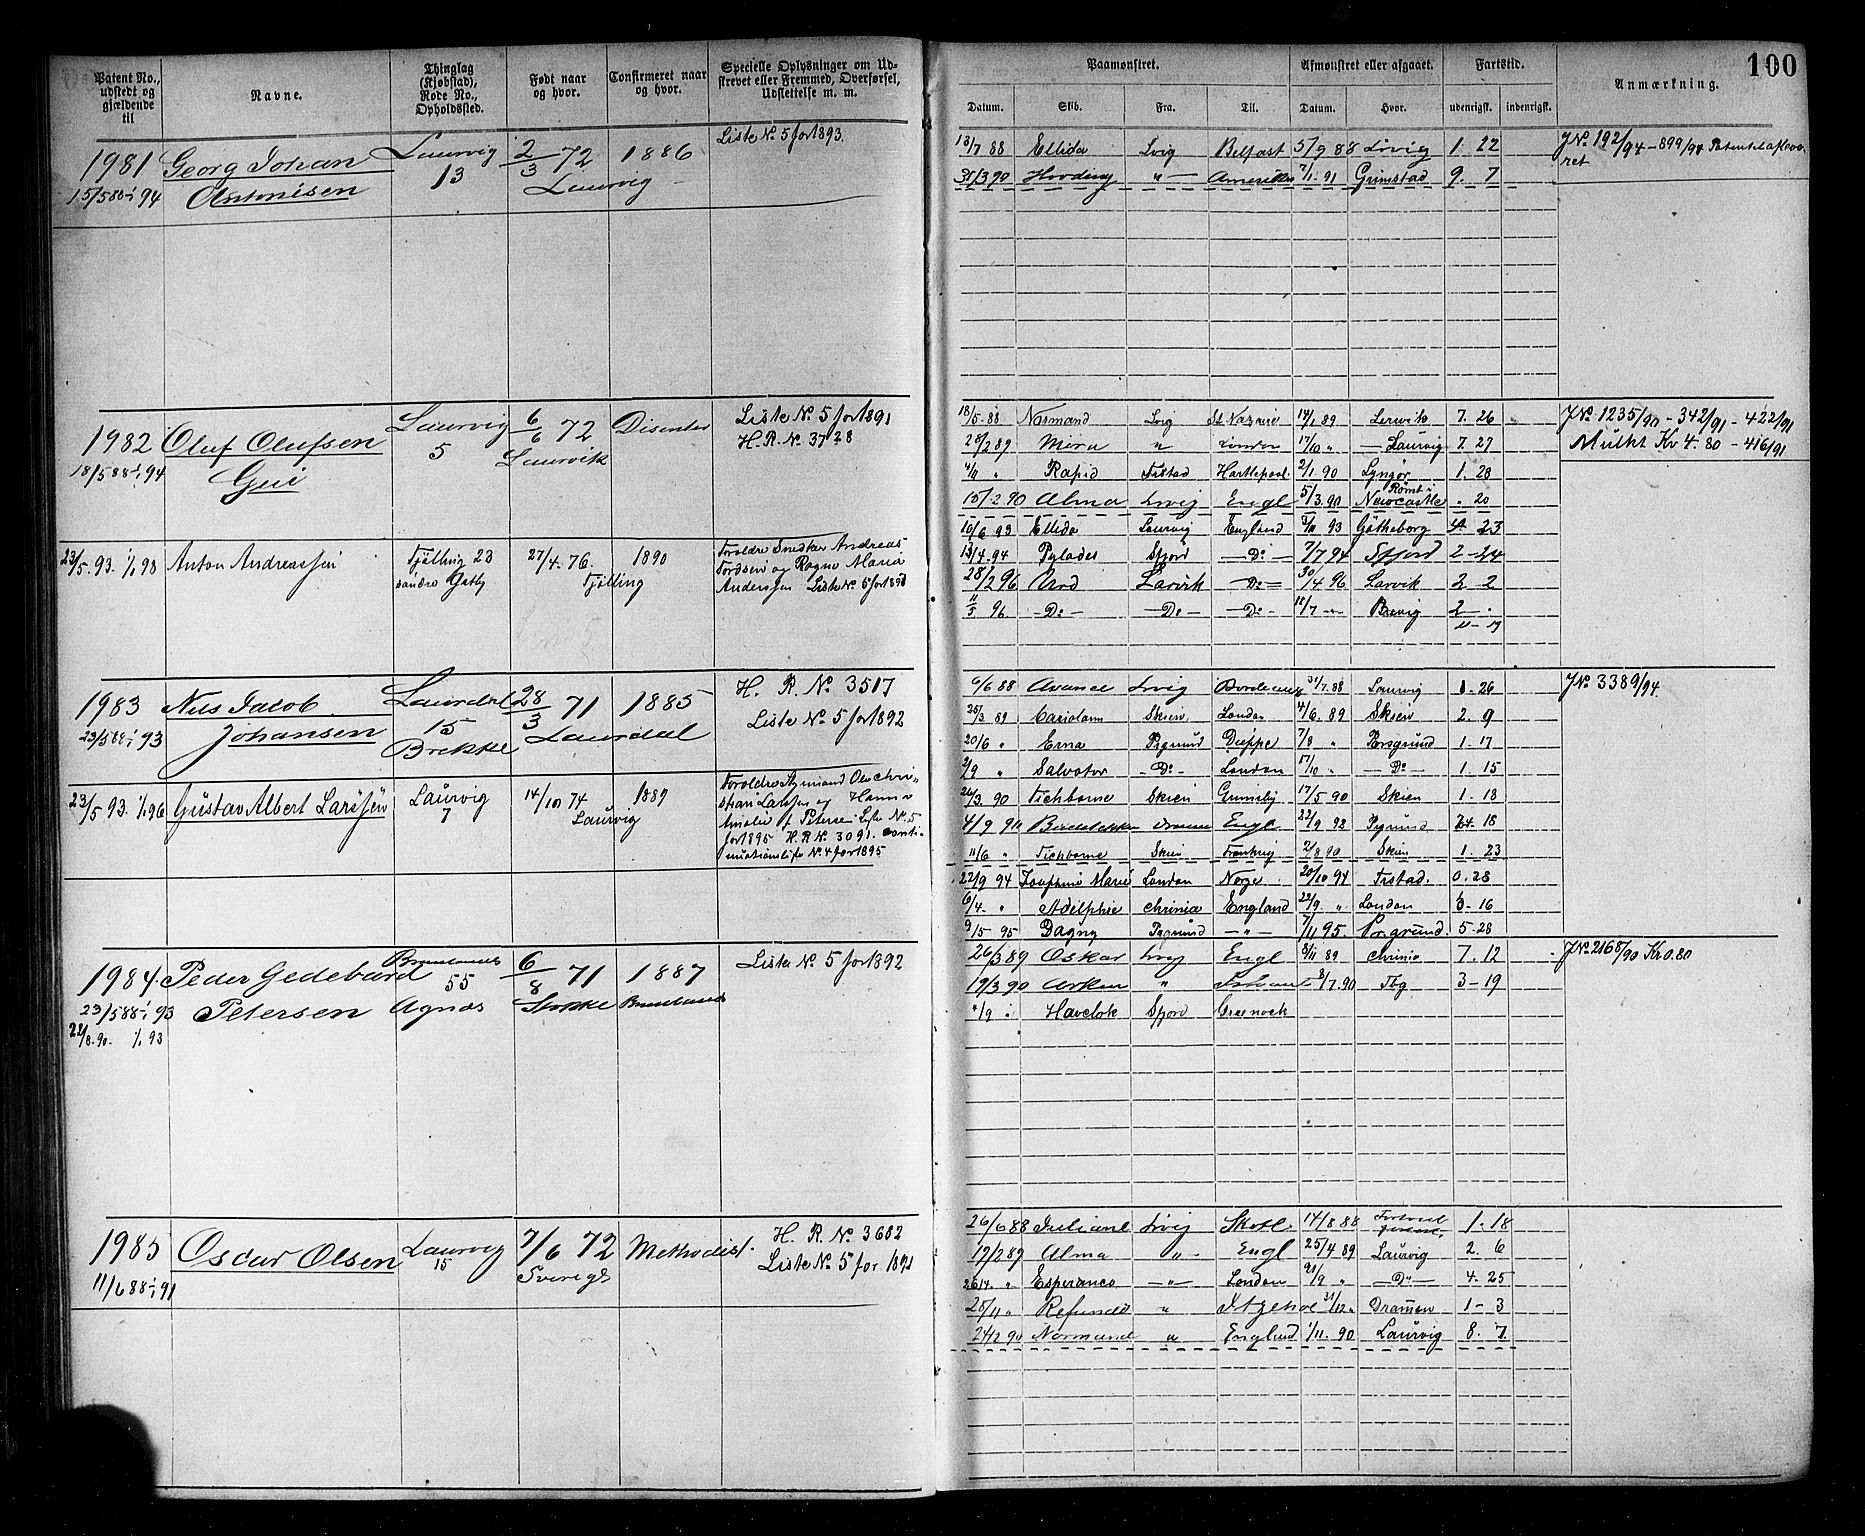 100
Patent No., udstedt og gjældende til
Navne.
Thinglag (Kjøbstad), Rode No., Opholdssted.
Født naar og hvor.
Confirmeret naar og hvor.
Specielle Oplysninger om Udskrevet eller Fremmed, Overførsel, Udslettelse m. m.
Paamønstret.
Afmønstret eller afgaaet.
Fartstid.
Anmærkning.
Datum. Skib. Fra. Til. Datum. Hvor. udenrigsk. indenrigsk.
1981 Georg Johan Laurvig 2/3 72 1886 Liste No. 5 for 1893.
15/5 88-1/1 94 Antonisen 13 Laurvig
13/7 88 Ellida Lvig Belfast 5/9 88 Lvig 1. 22 J No. 192/94 - 899/94 Patent
31/3 90 Hovding " Amerika 7/1 91 Grimstad 9. 7
1982 Oluf Olufsen Laurvig 6/6 72 Disenter Liste No. 5 for 1891
18/5 88-1/1 94 5 Laurvik H. R. No. 3728
18/5 88 Normand Lvig St Nazaire 14/1 89 Lervik 7. 26 J No. 1235/90 - 342/91 - 422/91
28/2 89 Mira " London 17/10 " Laurvig 7. 27 Mulkt Kr 4.80 - 416/91
4/11 " Rapid Frstad Hartlepool 2/1 90 Lyngør 1. 28
15/2 90 Alma Lvig Engl 5/3 90 Rømt i Newcastle " 20
23/5 93. 1/1 98 Anton Andreassen Tjølling 23 søndre Gjetby 27/4 76. Tjølling 1890
Andersen Liste No. 5 for 1898
16/6 93 Ellida Laurvig England 93 Gøtheborg 4 23
13/4 94 Pylades Sfjord Do 7/7 94 Sfjord 2-24
28/2 96 Larvik Do 30/4 96 Larvik 2 2
11/5 96 Do Do Do 18/7 Brevig 2
1983 Nils Jacob Laurdal 28/3 71 1885 H. R. No. 3517
23/5 88-1/1 93 Johansen 15 Brekke Laurdal Liste No. 5 for 1892
6/6 88 Avance Lvig Bordeaux 31/7 88 Laurvig 1. 26 J No. 3389/94.
25/3 89 Skien London 4/6 89 Skien 2. 9
20/6 " Erna Pgrund Dieppe 7/8 " Porsgrund 1. 17
2/9 " Salvator Do London 17/10 " Do 1. 15
26/3 90 Tichborne Skien Grimsby 17/5 90 Skien 1. 18
11/6 " Tichborne Skien Frankrig 2/8 90 Skien 1. 23
23/5 93. 1/1 96 Gustav Albert Larssen Laurvig 7 14/10 74 Laurvig 1889
for 1895 H. R. No. 3091.
No. 4 for 1895
4/9 Engl. 22/9 92 Pgrund 18
22/9 94 Josephine Marie London Norge 20/10 94 Frstad. 0.28
6/4 " Adelphie Chrinia England 22/9 " London 16
9/5 95 Dagny Pgrund " 7/11 95. Porsgrund. 5-28
1984. Peder Gedebard Brunlanes 6/8 71 1887 Liste No. 5 for 1892
23/5 88-1/1 93 Petersen 55 Agnæs Stokke Brunlanæs
22/8 90. 1/1 93
26/3 89 Oskar Lvig Engl 8/11 89 Chrinia 7. 12 J No. 2168/90 Kr 0.80
19/3 90 Orken " 8/7 90 Tbg 3-19
"/9 Havelok Sfjord Greenock
1985 Oscar Olsen Laurvig 7/6 72 Methodist. H. R. No. 3602
11/6 88-1/1 91 15 Sverige Liste No. 5 for 1891
26/6 88 Juliane Lvig Skotl. 14/8 88 1. 18
19/2 89 Alma " Engl 25/4 89 Laurvig 2. 6
26/4 " Esperance " London /9 " Do 4. 25
25/11 " Refundo " 31/12 " Drammen 1-3
24/2 90 Normand " England 1/11 90 Laurvig 8. 7